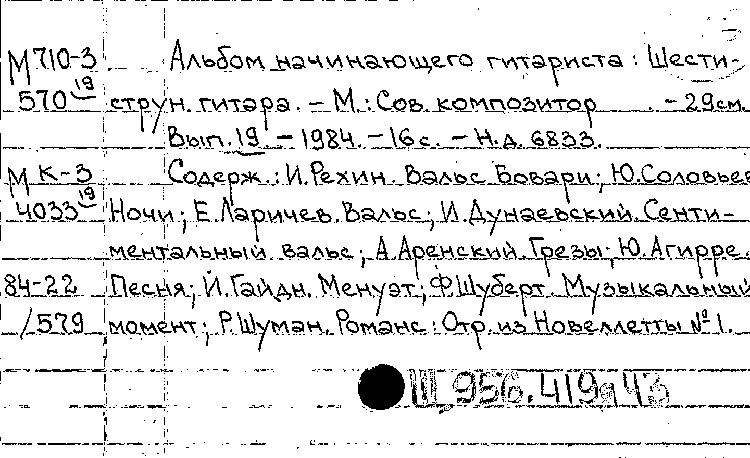 М 710-3 Альбом начинающего гитариста : Шести-
570 19 струн. гитара. – М. : Сов. композитор . – 29см.
Вып. 19 – 1984. – 16 с. – Н.д. 6833.
М К-3 Содерж. : И.Рехин. Вальс Бовари; Ю.Соловьев
4033 19 Ночи; Е.Ларичев. Вальс; И.Дунаевский. Сенти-
ментальный вальс; А.Аренский. Грезы; Ю.Агирре.
84-22 Песня; Й.Гайдн. Менуэт; Ф.Шуберт. Музыкальный
/579 момент; Р.Шуман. Романс : Отр. из Новеллетты № 1.
Щ 956.419я43